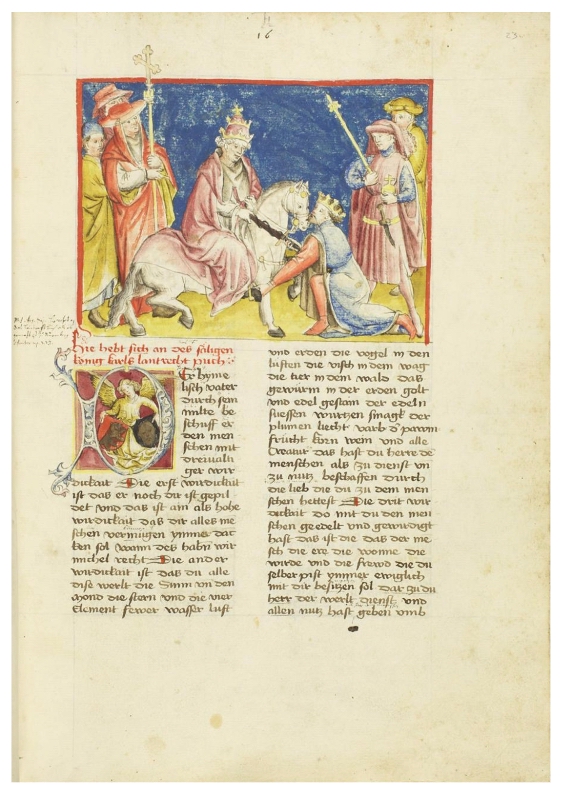 16
23
Hie hebt sich an des säligen
kunig karls lantrecht puch
Er hyme
lisch vater
durch sein
milte be
schuff er
den men
schen mit
drivalti
ger wir
dickait Die erst wirdickait
ist das er noch dir ist gepil
det vnd das ist ain als hohe
wirdickait das dir alles me
schen vermugen ymmer dac
ken sol wann des habn wir
michel recht Die ander
wirdickait ist das du alle
dise werlt die Sunn vn den
mond die stern vnd die vier
Element fewer wasser luft
vnd erden die vogel in den
luften die visch in dem wag
die tier in dem wald das
gewürm in der erden golt
vnd edel gestain der edeln
suessen wurtzen smagk der
plumen liecht varb der pawm
frücht korn wein vnd alle
Creatur das hast du herre de
menschen als zu dienst vn
zu nutz beschaffen durch
die lieb die du zu dem men
schen hettest Die drit wir
dickait do mit du den men
schen geedelt vnd gewirdigt
hast das ist die das der me
sch die ere die wonne die
wirde vnd die frewd die du
selber pist ymmer ewiglich
mit dir besitzen sol Dar zu du
herr der werlt dienst vnd
allen nutz hast geben vmb